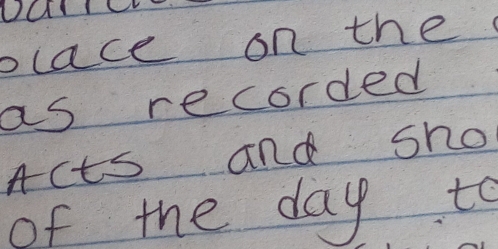 place on the
as recorded
Acts and sho
of the day to